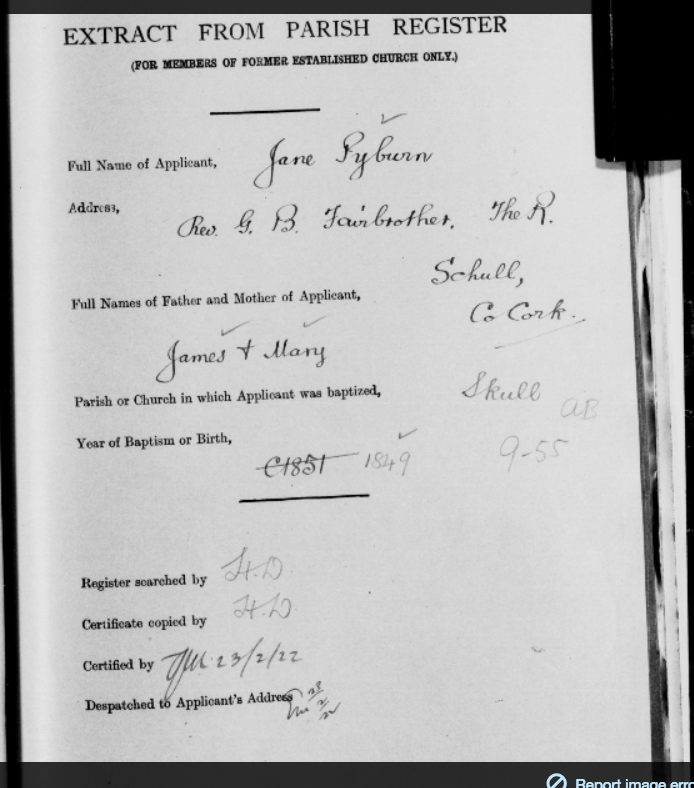 EXTRACT FROM PARISH REGISTER
(FOR MEMBERS OF FORMER ESTABLISHED CHURCH ONLY.)
Full Name of Applicant, Jane Pyburn
Address, Rev. G. B. Fairbrother. The R.
Schull,
Full Names of Father and Mother of Applicant,
Co Cork.
James + Mary
Parish or Church in which Applicant was baptized, Skull
AB
Year of Baptism or Birth,
C1851 1849 9-55
Register searched by H.D
Certificate copied by H.D
Certified by 23/2/22
Despatched to Applicant's Address
Report image erro